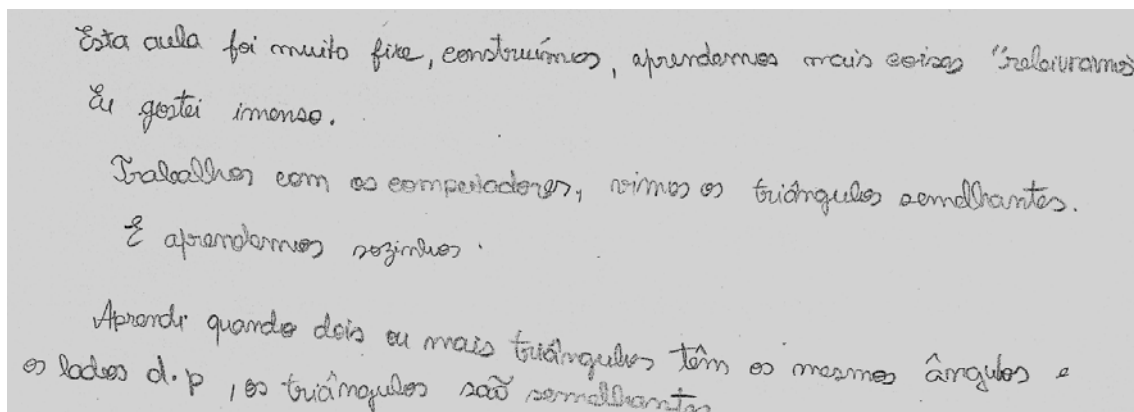 Esta aula foi muito fixe, construímos, aprendemos mais coisas
Eu gostei imenso.
Trabalhos com os computadores, vimos os triângulos semelhantes.
E aprendemos sozinhos.
Aprendi quando dois ou mais triângulos têm os mesmos ângulos e
os lados d.p, os triângulos são semelhantes